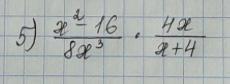 5) \frac{x^2 - 16}{8x^3} \cdot \frac{4x}{x+4}